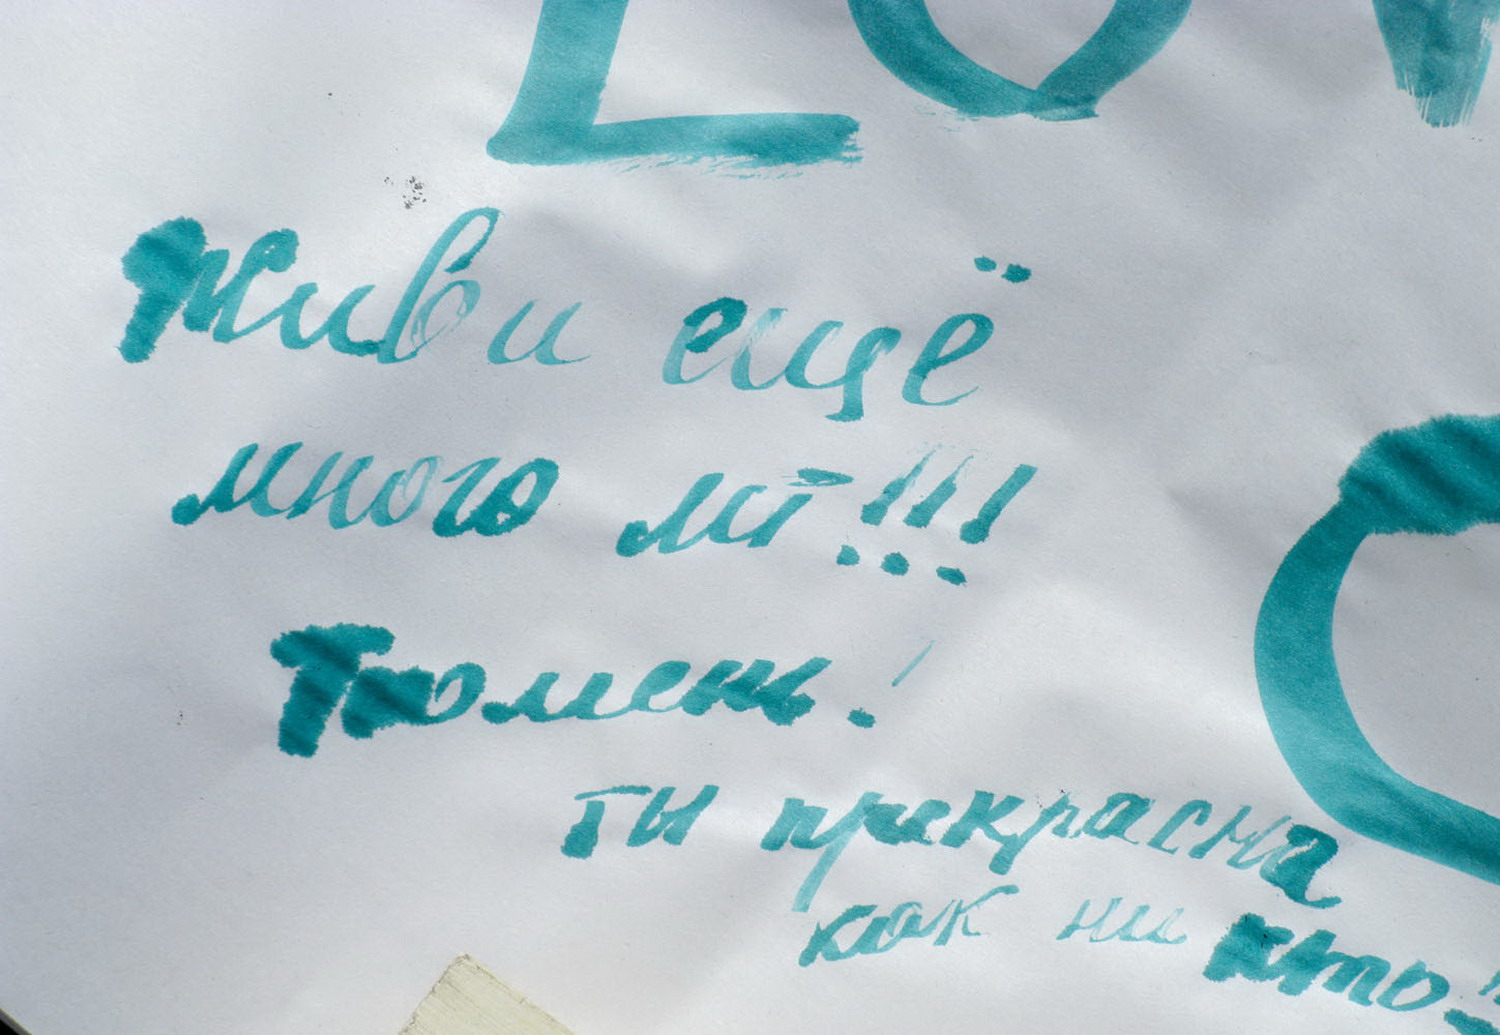 LOV
Живи ещё
много лет!!!
Тюмень!
ты прекрасна
как ни кто!!